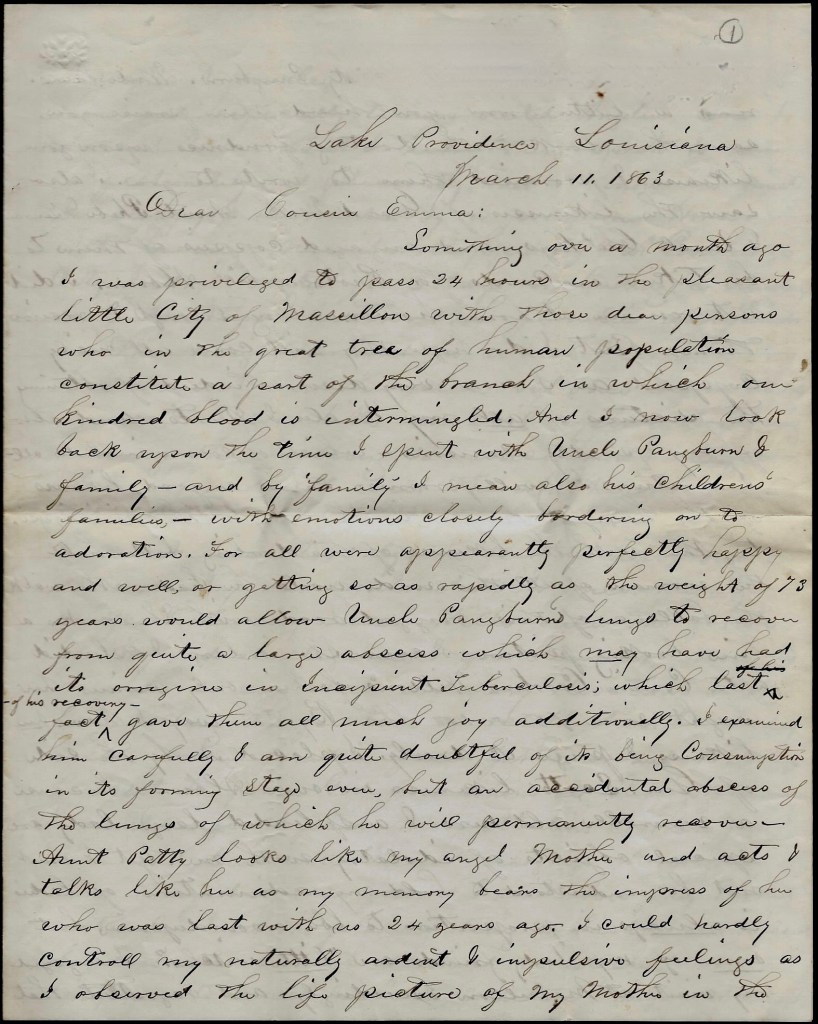 1
Lake Providence Louisiana
March 11. 1863
Dear Cousin Emma:
Something over a month ago
I was priviledged to pass 24 hours in the pleasant
little City of Massillon with those dear persons
who in the great tree of human population
constitute a part of the branch in which our
kindred blood is intermingled. And I now look
back upon the time I spent with Uncle Pangburn &
family — and by "family" I mean also his childrens'
families, — with emotions closely bordering on to
adoration. For all were appearantly perfectly happy
and well, or getting so as rapidly as the weight of 73
years would allow Uncle Pangburns lungs to recover
from quite a large abscess which may have had
its orrigine in incipient Tuberculosis; which last
of his
— of his recovery —
fact gave them all much joy additionally. I examined
him carefully & am quite doubtful of its being Consumption
in its forming stage even, but an accidental abscess of
the lungs of which he will permanently recover —
Aunt Patty looks like my angel Mother and acts &
talks like her as my memory bears the impress of her
who was last with us 24 years ago. I could hardly
controll my naturally ardent & impulsive feelings as
I observed the life picture of my Mother in the